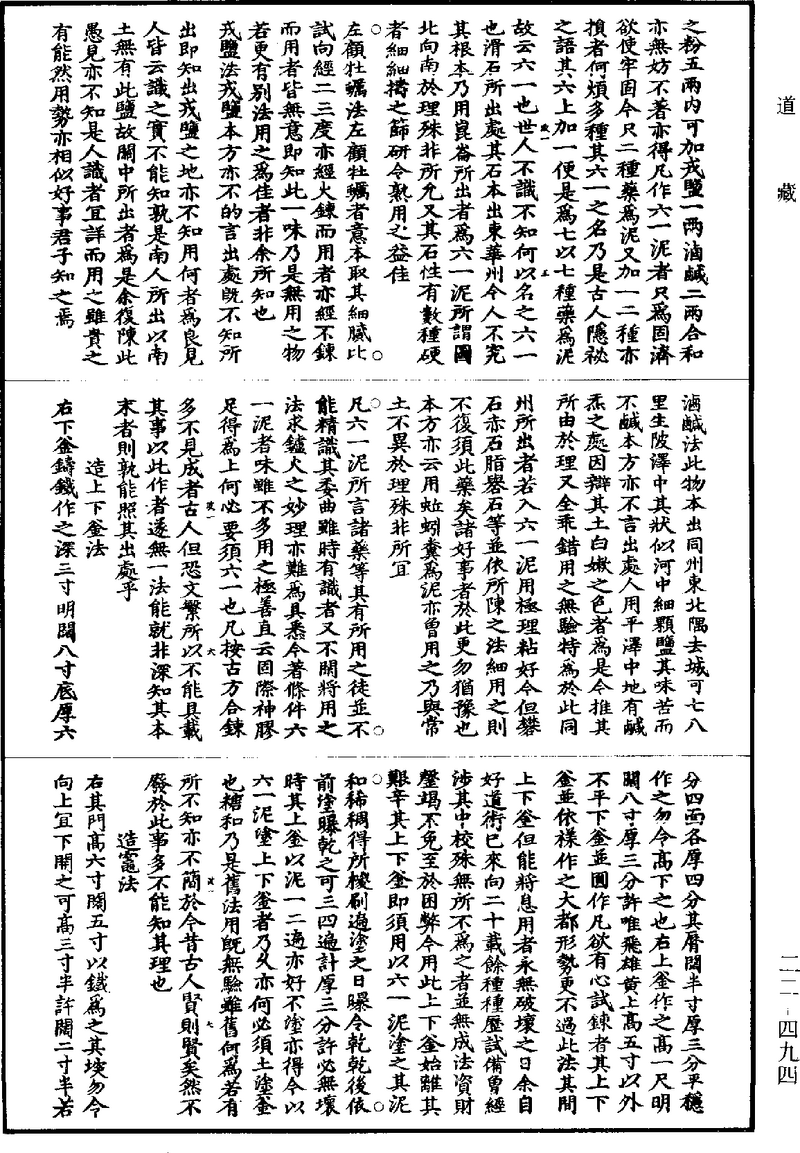 道藏
之粉五兩內可加戎鹽一兩滷鹹二兩合和
亦無妨不著亦得凡作六一泥者只為固濟
欲使牢固今只二種藥為泥又加一二種亦
損者何煩多種其六一之名乃是古人隱祕
之語其六上加一便是為七以七種藥為泥
故云六一也世人不識不知何以名之六一
也滑石所出處其石本出東華州今人不究
其根本乃用崑崙所出者為六一泥所謂圖
北向南於理殊非所允又其石性有數種硬
者細細擣之篩研令熟用之益佳
左顧牡蠣法左顧牡蠣者意本取其細膩比
試向經二三度亦經火鍊而用者亦經不鍊
而用者皆無意即知此一味乃是無用之物
若更有別法用之為佳者非余所知也
戎鹽法戎鹽本方亦不的言出處旣不知所
出即知出戎鹽之地亦不知用何者為良見
人皆云識之實不能知孰是南人所出以南
土無有此鹽故關中所出者為是余復陳此
愚見亦不知是人識者宜詳而用之雖貴之
有能然用勢亦相似好事君子知之焉
滷鹹法此物本出同州東北隅去城可七八
里生陂澤中其狀似河中細顆鹽其味苦而
不鹹本方亦不言出處人用平澤中地有鹹
炁之處因辯其土白嫰之色者為是今推其
所由於理又全乖錯用之無驗特為於此同
州所出者若入六一泥用極理粘好今但礬
石赤石脂礜石等並依所陳之法細用之則
不復須此藥矣諸好事者於此更勿猶豫也
本方亦云用蚯蚓糞為泥亦曾用之乃與常
土不異於理殊非所宜
凡六一泥所言諸藥等其有所用之徒並不
能精識其委曲雖時有識者又不閑將用之
法求鑪火之妙理亦難為具悉今著條件六
一泥者味雖不多用之極善直云固際神膠
足得為上何必要須六一也凡按古方合鍊
多不見成者古人但恐文繁所以不能具載
其事以此作者遂無一法能就非深知其本
末者則孰能照其出處乎
造上下釜法
右下釜鑄鐵作之深三寸明闊八寸底厚六
分四面各厚四分其脣闊半寸厚三分平穩
作之勿令高下之也右上釜作之高一尺明
闊八寸厚三分許唯飛雄黃上高五寸以外
不平下釜並圓作凡欲有心試鍊者其上下
釜並依樣作之大都形勢更不過此法其間
上下釜但能將息用者永無破壞之日余自
好道術已來向二十載餘種種歷試備曾經
涉其中校殊無所不為之者並無成法資財
罄竭不免至於困弊今用此上下釜始離其
艱辛其上下釜即須用以六一泥塗之其泥
和稀稠得所㯶刷遍塗之日曝令乾乾後依
前塗曝乾之可三四遍計厚三分許必無壞
時其上釜以泥一二遍亦好不塗亦得今以
六一泥塗上下釜者乃久亦何必須土塗釜
也糖和乃是舊法用旣無驗雖舊何為若有
所不知亦不簡於今昔古人賢則賢矣然不
廢於此事多不能知其理也
造竈法
右其門高六寸闊五寸以鐵為之其堗勿令
向上宜下開之可高三寸半許闊二寸半若
二二-四九四